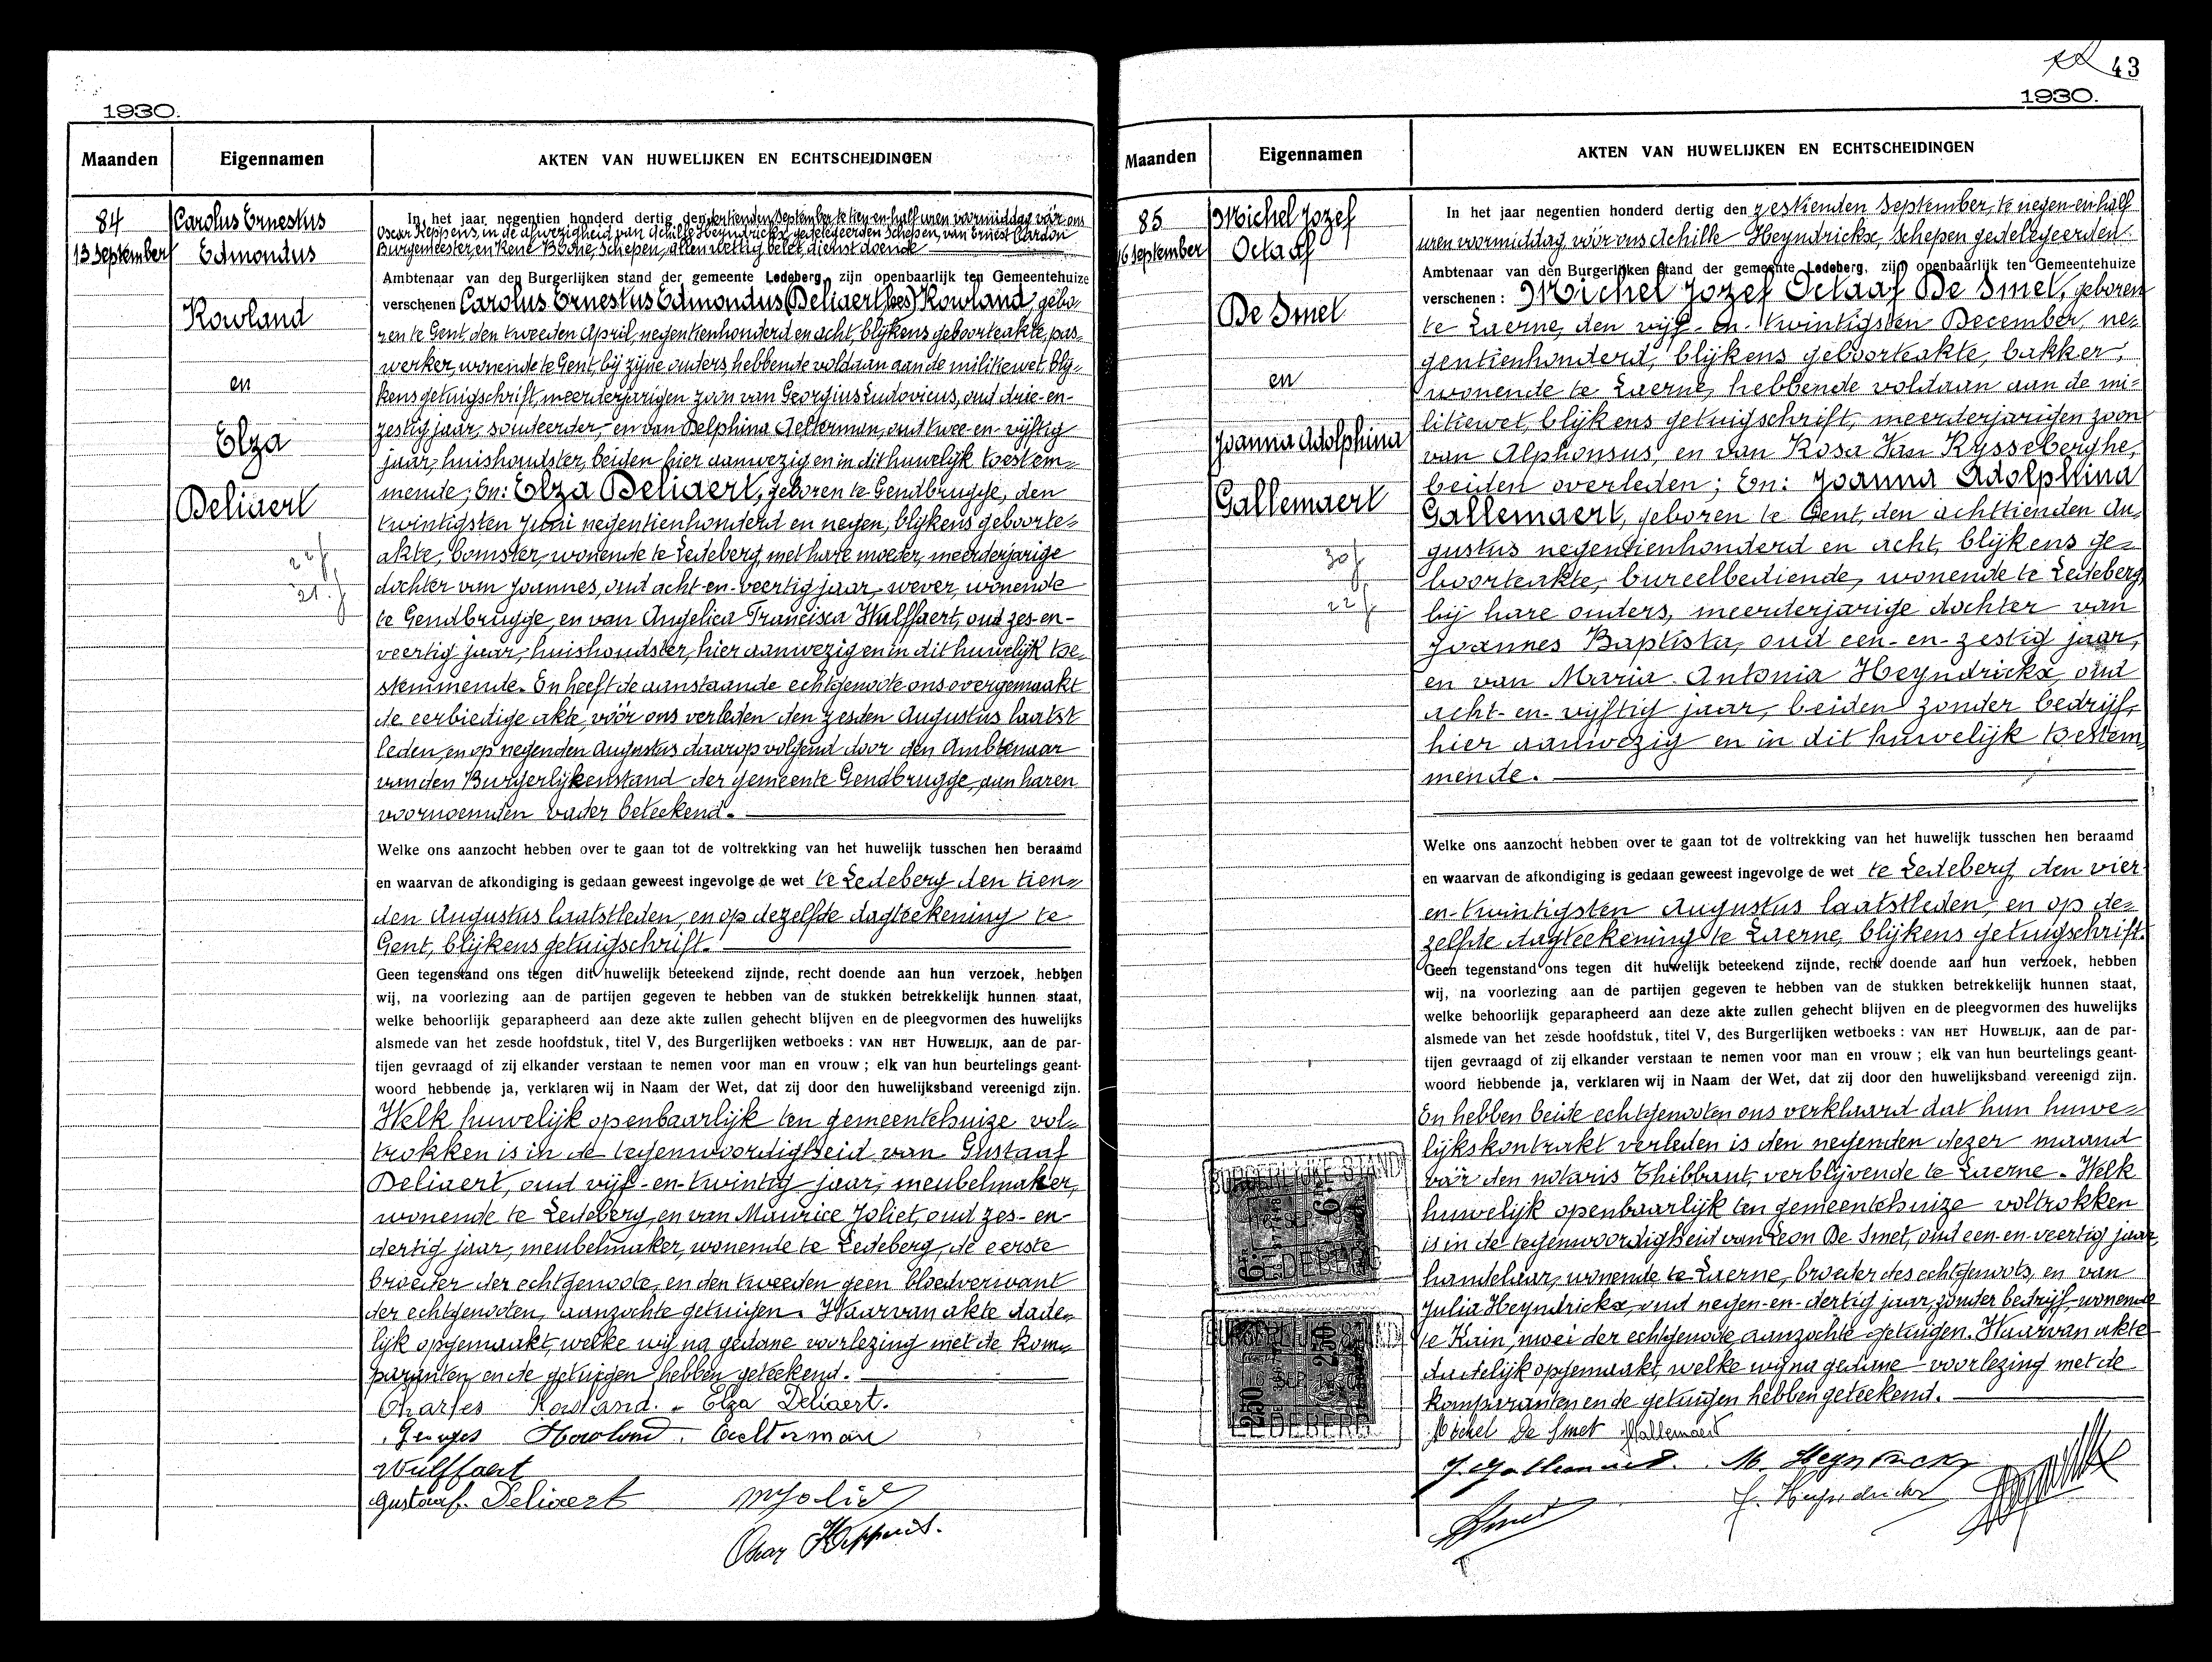 1930.
Maanden
Eigennamen
AKTEN VAN HUWELIJKEN EN ECHTSCHEIDINGEN
84
13 September
Carolus Ernestus
Edmondus
Rowland
en
Elza
Deliaert
22 j
21. j
In het jaar negentien honderd dertig den dertienden September te tien-en-half uren voormiddag vóór ons
Oscar Reppens, in de afwezigheid van Achille Heyndrickx, gedelegeerden Schepen, van Ernest Cardon
Burgemeester, en René Boone, Schepen, allen wettig belet, dienstdoende
Ambtenaar van den Burgerlijken stand der gemeente Ledeberg, zijn openbaarlijk ten Gemeentehuize
verschenen Carolus Ernestus Edmondus (Deliaert) Rowland, gebo=
ren te Gent, den tweeden April, negentienhonderd en acht, blijkens geboorteakte, pas=
werker, wonende te Gent, bij zijne ouders, hebbende voldaan aan de militiewet, blij=
kens getuigschrift, meerderjarigen zoon van Georgius Ludovicus, oud drie-en-
zestig jaar, soudeerder, en van Delphina Aelterman, oud twee-en-vijftig
jaar, huishoudster, beiden hier aanwezig en in dit huwelijk toestem=
mende; En: Elza Deliaert, geboren te Gendbrugge, den
twintigsten Juni negentienhonderd en negen, blijkens geboorte=
akte, bomster, wonende te Ledeberg, met hare moeder, meerderjarige
dochter van Joannes, oud acht-en-veertig jaar, wever, wonende
te Gendbrugge, en van Angelica Francisca Wulffaert, oud zes-en-
veertig jaar, huishoudster, hier aanwezig en in dit huwelijk toe=
stemmende. En heeft de aanstaande echtgenoote ons overgemaakt
de eerbiedige akte, vóór ons verleden den zesden Augustus laatst
leden, en op negenden Augustus daarop volgend door den Ambtenaar
van den Burgerlijkenstand der gemeente Gendbrugge, aan haren
voornoemden vader beteekend.
Welke ons aanzocht hebben over te gaan tot de voltrekking van het huwelijk tusschen hen beraamd
en waarvan de afkondiging is gedaan geweest ingevolge de wet te Ledeberg den tien=
den Augustus laatstleden, en op dezelfde dagteekening te
Gent, blijkens getuigschrift.
Geen tegenstand ons tegen dit huwelijk beteekend zijnde, recht doende aan hun verzoek, hebben
wij, na voorlezing aan de partijen gegeven te hebben van de stukken betrekkelijk hunnen staat,
welke behoorlijk geparapheerd aan deze akte zullen gehecht blijven en de pleegvormen des huwelijks
alsmede van het zesde hoofdstuk, titel V, des Burgerlijken wetboeks : VAN HET HUWELIJK, aan de par-
tijen gevraagd of zij elkander verstaan te nemen voor man en vrouw ; elk van hun beurtelings geant-
woord hebbende ja, verklaren wij in Naam der Wet, dat zij door den huwelijksband vereenigd zijn.
Welk huwelijk openbaarlijk ten gemeentehuize vol=
trokken is in de tegenwoordigheid van Gustaaf
Deliaert, oud vijf-en-twintig jaar, meubelmaker,
wonende te Ledeberg, en van Maurice Joliet, oud zes-en-
dertig jaar, meubelmaker, wonende te Ledeberg, de eerste
broeder der echtgenoote, en den tweeden geen bloedverwant
der echtgenooten, aanzochte getuigen. Waarvan akte dade=
lijk opgemaakt, welke wij na gedane voorlezing met de kom=
paranten en de getuigen hebben geteekend.
Charles Rowland. - Elza Deliaert.
Georges Howlond. Aelterman
Wulffaert
Gustaaf. Deliaert
Oscar Reppens.
43
1930.
Maanden
Eigennamen
AKTEN VAN HUWELIJKEN EN ECHTSCHEIDINGEN
85
16 September
Michel Jozef
Octaaf
De Smet
en
Joanna Adolphina
Gallemaert
30 j
22 j
In het jaar negentien honderd dertig den zestienden September, te negen-en-half
uren voormiddag, vóór ons Achille Heyndrickx, Schepen gedelegeerden
Ambtenaar van den Burgerlijken stand der gemeente Ledeberg, zijn openbaarlijk ten Gemeentehuize
verschenen : Michel Jozef Octaaf De Smet, geboren
te Laerne, den vijf-en-twintigsten December, ne=
gentienhonderd, blijkens geboorteakte, bakker,
wonende te Laerne, hebbende voldaan aan de mi=
litiewet, blijkens getuigschrift, meerderjarigen zoon
van Alphonsus, en van Rosa Van Rysseberghe,
beiden overleden; En: Joanna Adolphina
Gallemaert, geboren te Gent, den achttienden Au=
gustus negentienhonderd en acht, blijkens ge=
boorteakte, bureelbediende, wonende te Ledeberg,
bij hare ouders, meerderjarige dochter van
Joannes Baptista, oud een-en-zestig jaar,
en van Maria Antonia Heyndrickx, oud
acht-en-vijftig jaar, beiden zonder bedrijf,
hier aanwezig en in dit huwelijk toestem=
mende.
Welke ons aanzocht hebben over te gaan tot de voltrekking van het huwelijk tusschen hen beraamd
en waarvan de afkondiging is gedaan geweest ingevolge de wet te Ledeberg, den vier-
en-twintigsten Augustus laatstleden, en op de=
zelfde dagteekening te Laerne, blijkens getuigschrift.
Geen tegenstand ons tegen dit huwelijk beteekend zijnde, recht doende aan hun verzoek, hebben
wij, na voorlezing aan de partijen gegeven te hebben van de stukken betrekkelijk hunnen staat,
welke behoorlijk geparapheerd aan deze akte zullen gehecht blijven en de pleegvormen des huwelijks
alsmede van het zesde hoofdstuk, titel V, des Burgerlijken wetboeks : VAN HET HUWELIJK, aan de par-
tijen gevraagd of zij elkander verstaan te nemen voor man en vrouw ; elk van hun beurtelings geant-
woord hebbende ja, verklaren wij in Naam der Wet, dat zij door den huwelijksband vereenigd zijn.
En hebben beide echtgenooten ons verklaard dat hun huwe=
lijkskontrakt verleden is den negenden dezer maand
vóór den notaris Thibbaut, verblijvende te Laerne. Welk
huwelijk openbaarlijk ten gemeentehuize voltrokken
is in de tegenwoordigheid van Leon De Smet, oud een-en-veertig jaar,
handelaar, wonende te Laerne, broeder des echtgenoots, en van
Julia Heyndrickx, oud negen-en-dertig jaar, zonder bedrijf, wonende
te Kain, moei der echtgenoote aanzochte getuigen. Waarvan akte
dadelijk opgemaakt, welke wij na gedane voorlezing met de
komparanten en de getuigen hebben geteekend.
Michel De Smet JGallemaert
J. Gallemaert. M. Heyndrickx
J. Heyndrickx
BURGERLIJKE STAND
LEDEBERG
LEDEBERG